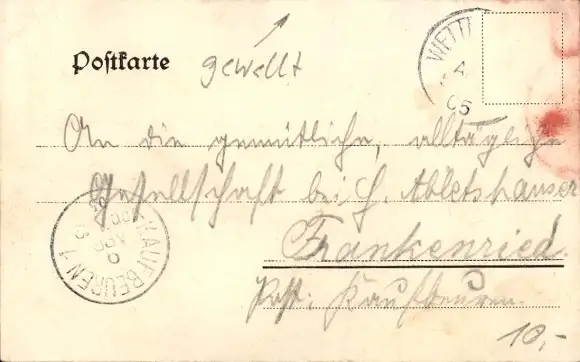 Postkarte gewellt
WETT
A
05
An die gemütliche, alltägliche
Gesellschaft bei H. Abletshauser
Frankenried.
Post: Kaufbeuren.
KAUFBEUREN 1
APR
10,-